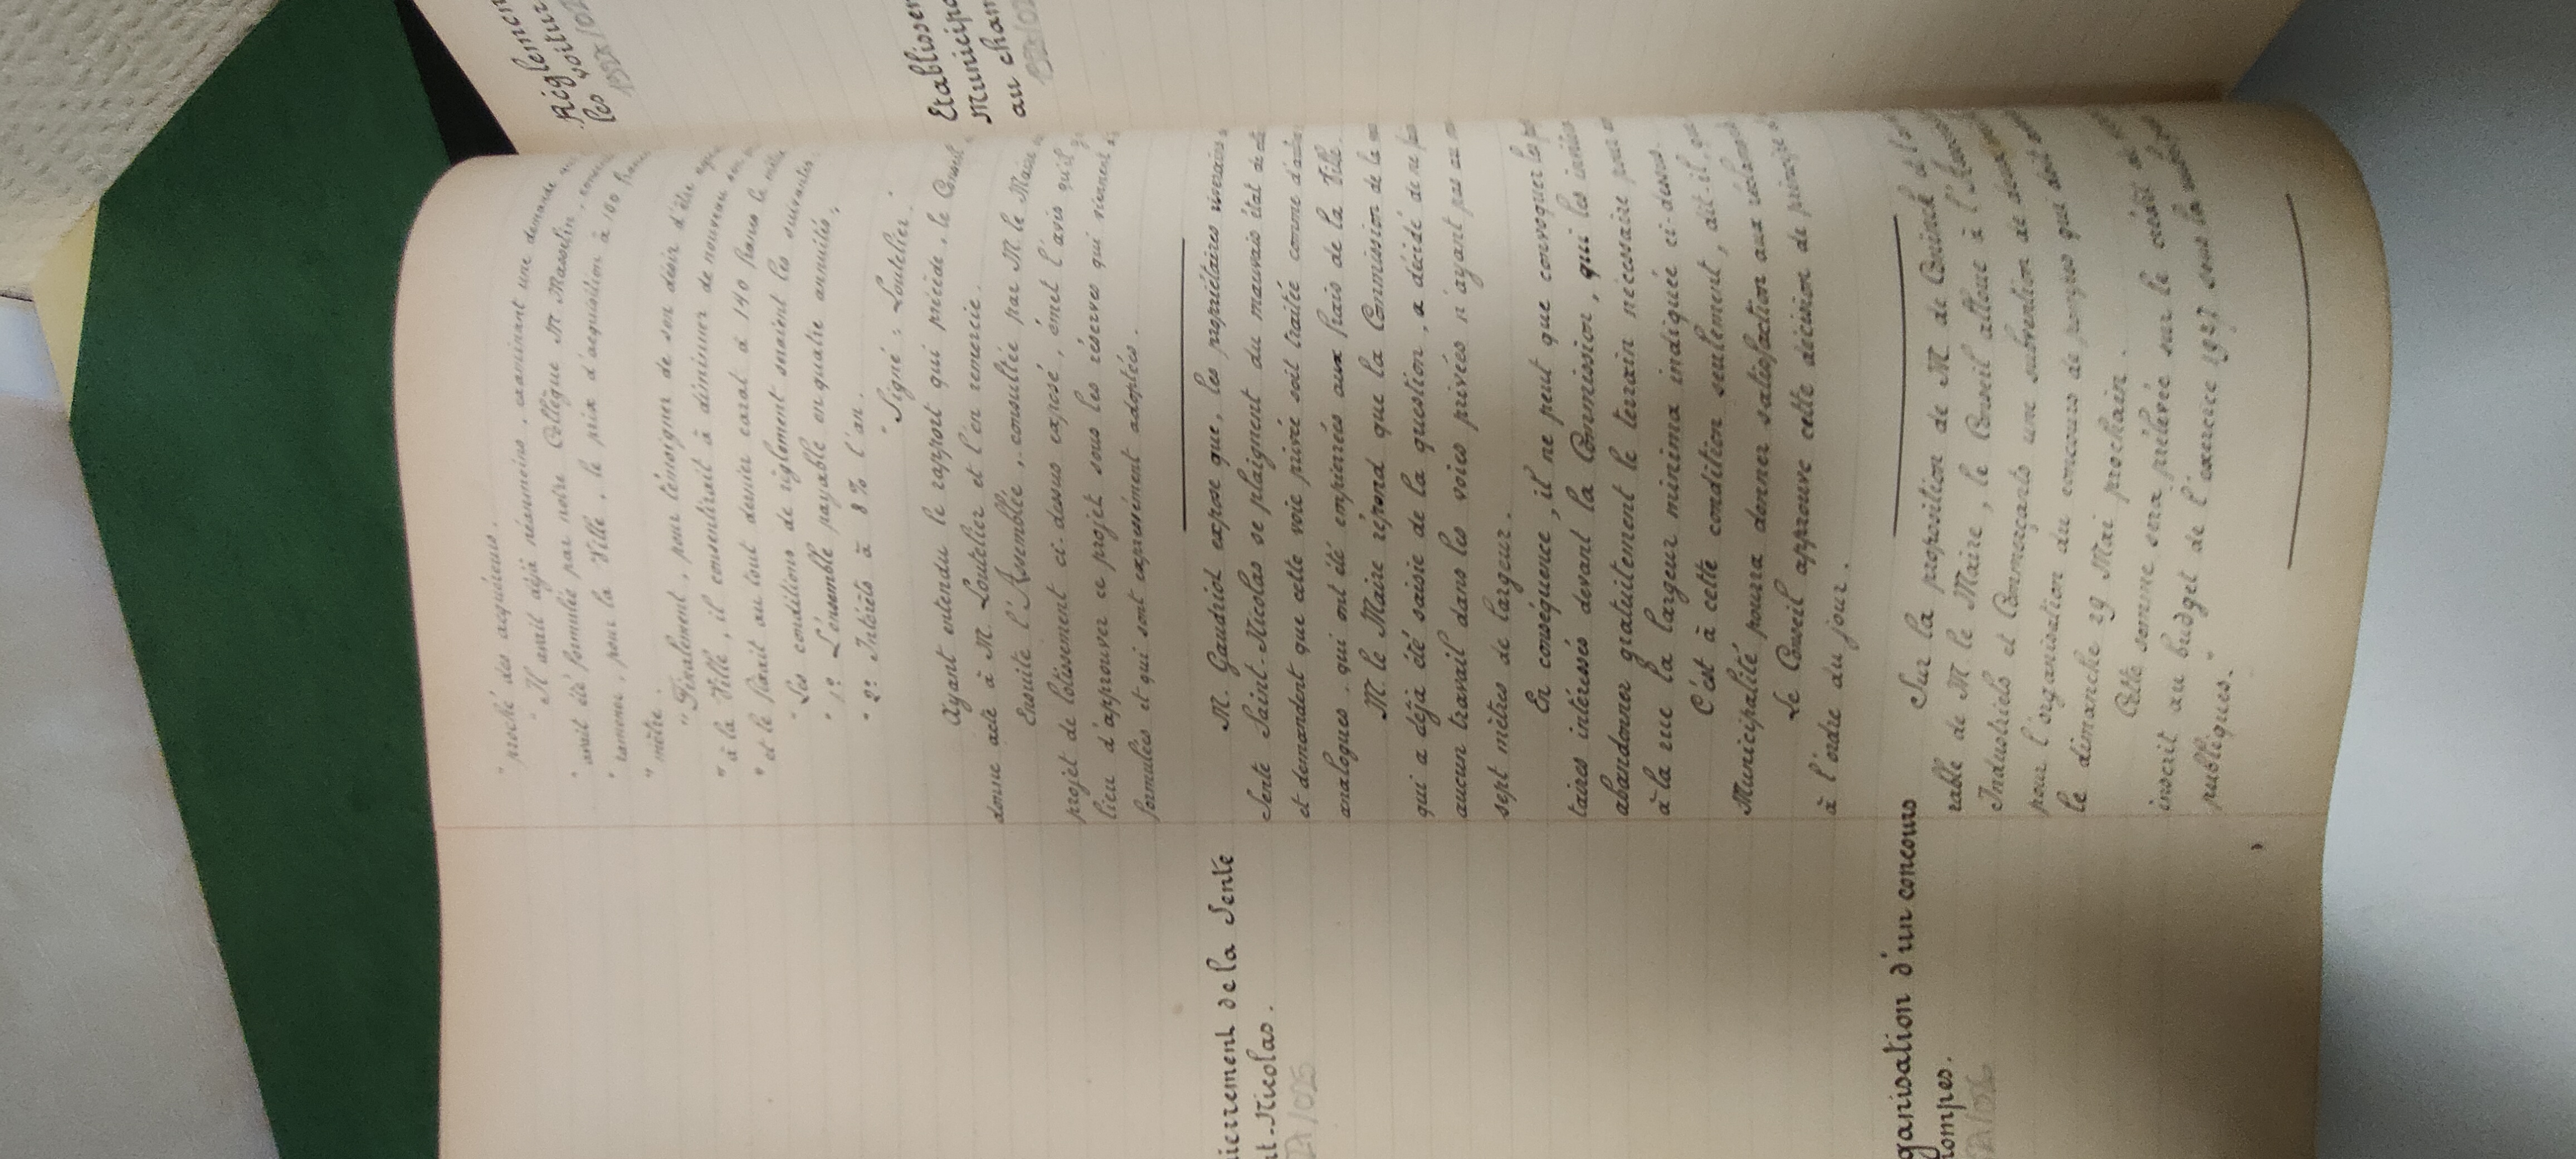 " proché des acquéreurs.
" Il avait déjà néanmoins, examinant une demande
" avait été formulée par notre Collègue M. Masselin,
" ramener, pour la Ville, le prix d'acquisition à 100 francs
" mètre.
" Finalement, pour témoigner de son désir d'être
" à la Ville, il consentirait à diminuer de nouveau
" et le ferait au tout dernier carat à 140 francs le mètre
" Les conditions de règlement seraient les suivantes :
" 1º L'ensemble payable en quatre annuités ;
" 2º Intérêts à 8 % l'an.
" Signé : Loutelier.
Ayant entendu le rapport qui précède, le Conseil
donne acte à M. Loutelier et l'en remercie.
Ensuite l'Assemblée, consultée par M. le Maire
projet de lotissement ci-dessus exposé, émet l'avis qu'il
lieu d'approuver ce projet sous les réserves qui viennent
formulées et qui sont expressément adoptées.
Empierrement de la Sente
Saint-Nicolas.
/025
M. Gaudriot expose que, les propriétaires riverains
Sente Saint-Nicolas se plaignent du mauvais état de
et demandent que cette voie privée soit traitée comme
analogues, qui ont été empierrées aux frais de la Ville.
M. le Maire répond que la Commission de la
qui a déjà été saisie de la question, a décidé de ne
aucun travail dans les voies privées n'ayant pas au
sept mètres de largeur.
En conséquence, il ne peut que convoquer les
taires intéressés devant la Commission, qui les
abandonner gratuitement le terrain nécessaire pour
à la rue la largeur minima indiquée ci-dessus.
C'est à cette condition seulement, dit-il,
Municipalité pourra donner satisfaction aux
Le Conseil approuve cette décision de principe
à l'ordre du jour.
ganisation d'un concours
pompes.
/026
Sur la proposition de M. de Corinck et
rable de M. le Maire, le Conseil alloue à l'
Industriels et Commerçants une subvention de
pour l'organisation du concours de pompes qui doit
le dimanche 29 Mai prochain.
Cette somme sera prélevée sur le crédit
inscrit au budget de l'exercice 1927 sous la
publiques."
Règlemen
les voitur
Etablissem
Municipa
au cham